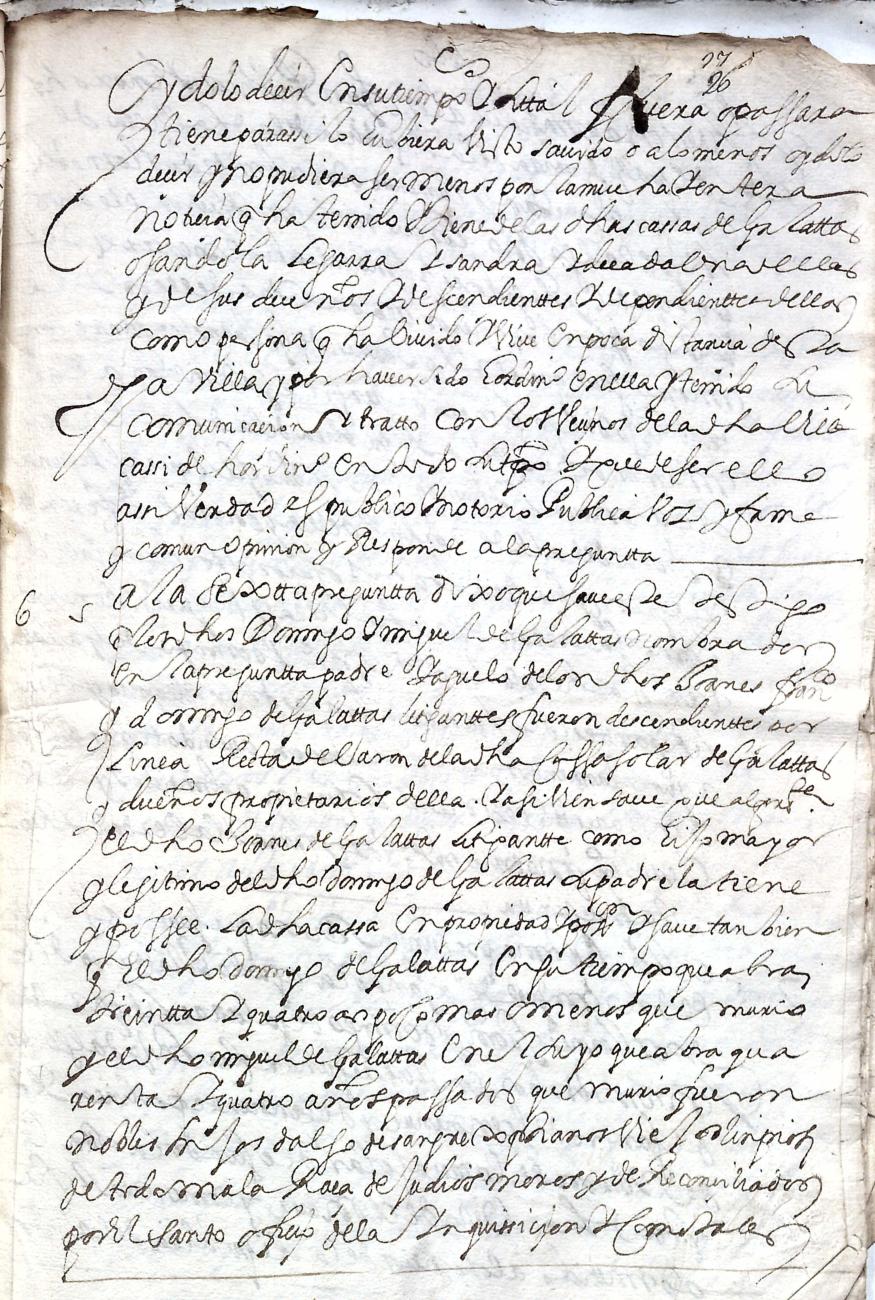 27
26
oydolo decir en su tiempo y si tal fuera o passara
tiene para si lo hubiera visto savido o a lo menos oydolo
decir y no pudiera ser menos por la mucha y entera
noticia q ha tenido y tiene de las dhas cassas de Galattas
y de sus dueños y descendienttes y dependienttes dellas
como persona q ha vivido y vive en poca distancia desta
villa y por haver sido hordinº en ella y tenido la
comunicacion y tratto con los vecinos de la dha villa
cassi de hordinº en todo su tpo y que de ser ello
assi verdad es publico y notorio publica voz y fama
y comun opinion y responde a la preguntta
6 a la sextta preguntta dixo que save este testigo
los dhos Domingo y miguel de Galattas nombrados
en la preguntta padre y aguelo de los dhos Joanes franco
y domingo de Galattas litiganttes fueron descendienttes por
linea recta de varon de la dha cassa solar de Galattas
y dueños propietarios della. y assi bien save que al preste
el dho Joanes de Galattas litigantte como hijo mayor
y legitimo del dho domingo de Galattas su padre la tiene
y possee. la dha cassa en propiedad y poson y save tanbien
q el dho domingo de Galattas en su tiempo que abra
treintta y quatro as poco mas o menos que murio
y el dho miguel de Galattas en el suyo que abra qua
renta y quatro años passados que murio fueron
nobles hijos dalgo de sangre xptianos viejos linpios
de toda mala raça de judios moros y de reconciliados
por el santo officio de la Inquissicion y como tales